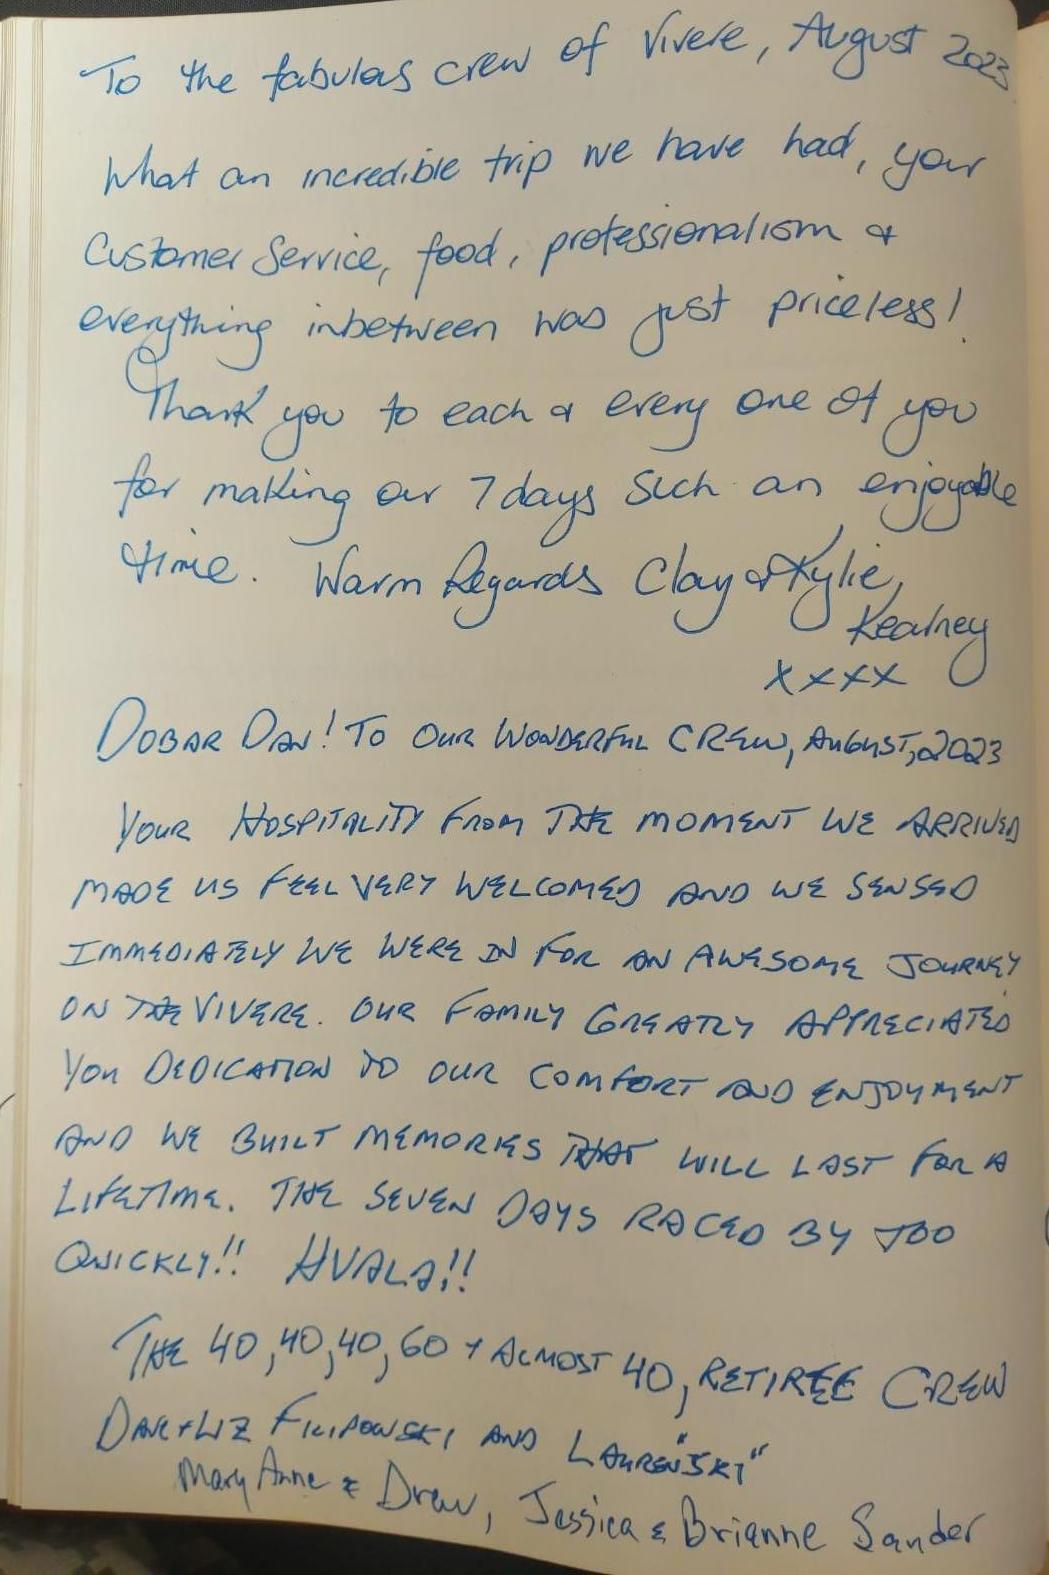 To the fabulas crew of Vivere, August 2023
What an incredible trip we have had, your
Customer Service, food, professionalism &
everything inbetween was just priceless!
Thank you to each & every one of you
for making our 7 days such an enjoyable
time. Warm Regards Clay & Kylie,
Kearney
xxxx
DOBAR DAN! TO OUR WONDERFUL CREW, AUGUST, 2023
YOUR HOSPITALITY FROM THE MOMENT WE ARRIVED
MADE US FEEL VERY WELCOMED AND WE SENSED
IMMEDIATELY WE WERE IN FOR AN AWESOME JOURNEY
ON THE VIVERE. OUR FAMILY GREATLY APPRECIATED
YOU DEDICATION TO OUR COMFORT AND ENJOYMENT
AND WE BUILT MEMORIES THAT WILL LAST FOR A
LIFETIME. THE SEVEN DAYS RACED BY TOO
QUICKLY!! HVALA!!
THE 40, 40, 40, 60 + ALMOST 40, RETIREE CREW
DAVE + LIZ FILIPOWSKI AND LAUREN "SKI"
Mary Anne & Drew, Jessica & Brianne Sander